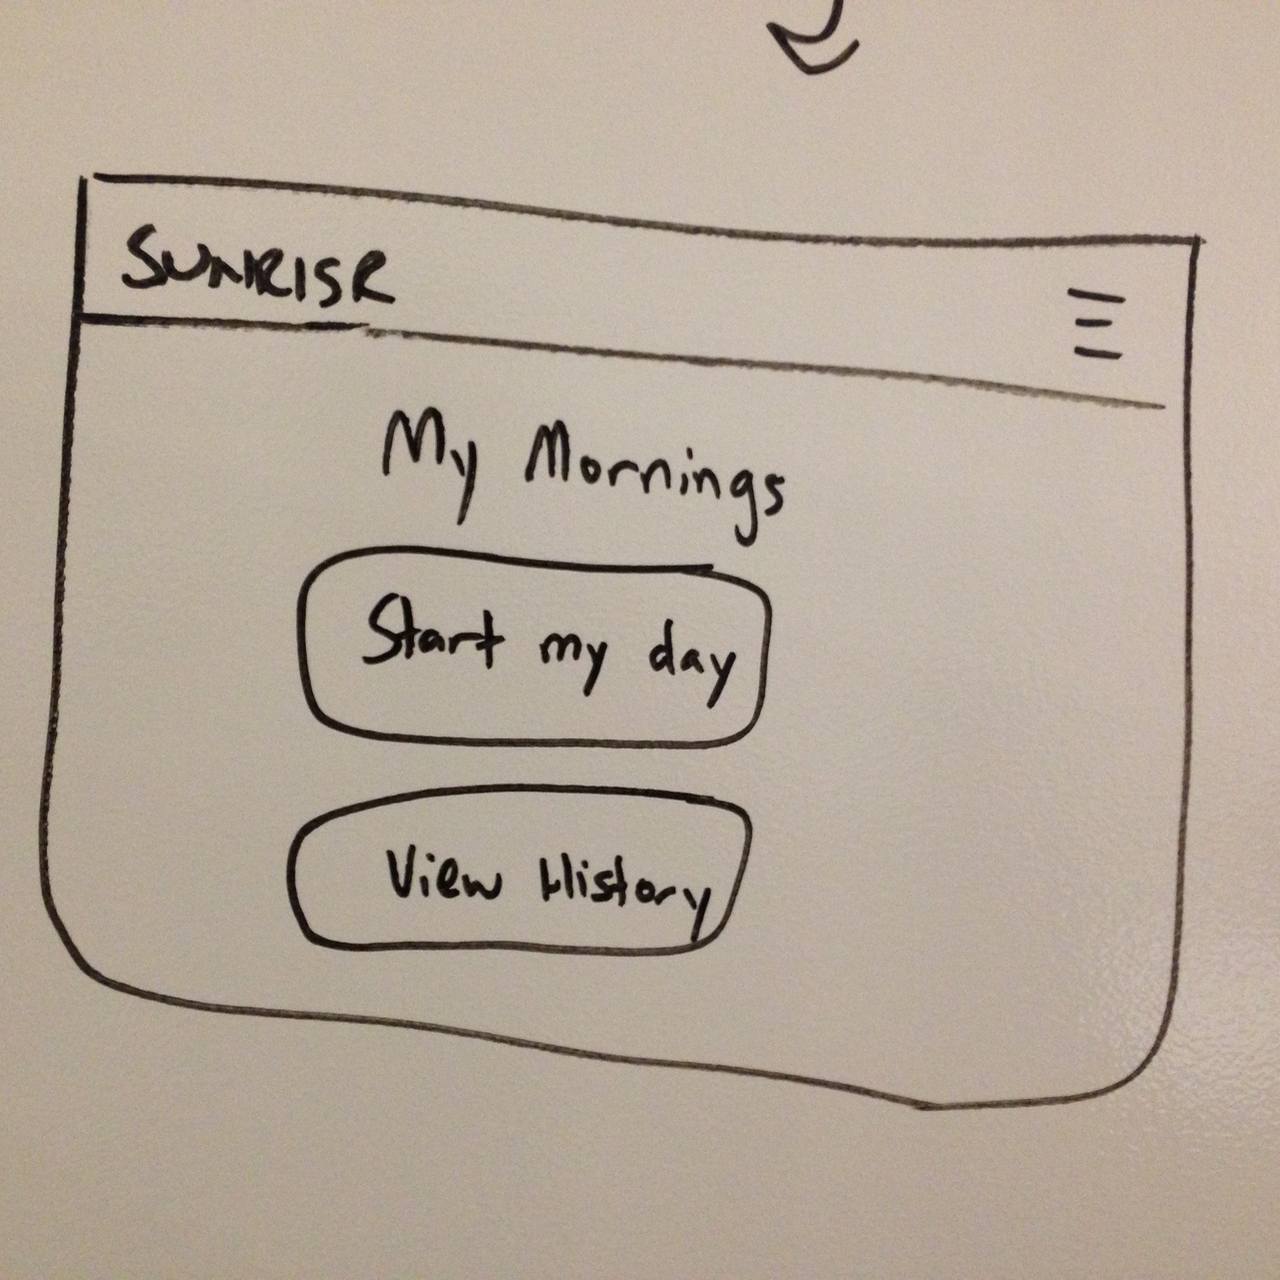 SUNRISR
My Mornings
Start my day
View History